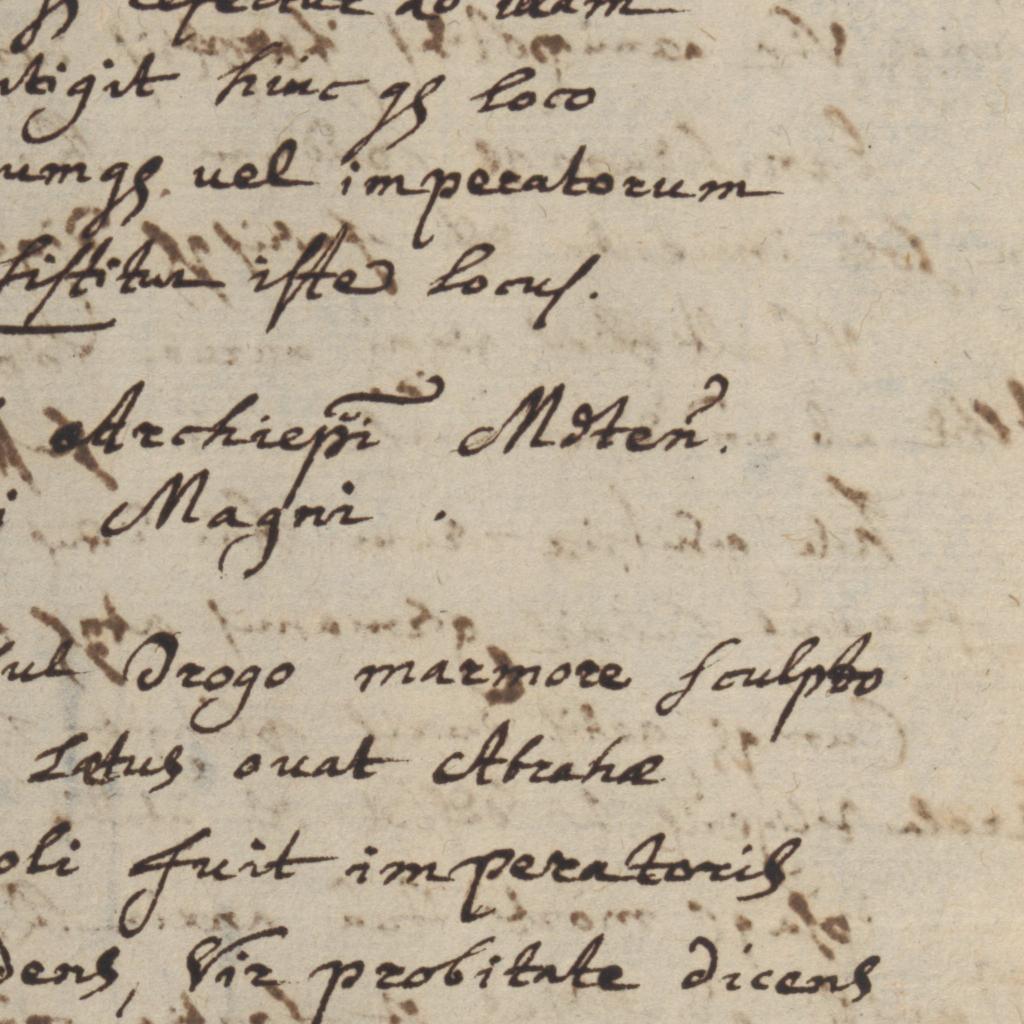 refertur ab illam
ntigit hinc qȝ loco
umqȝ vel imperatorum
sistitur iste locus.
Archiepī Mdten̄.
i Magni.
sul Drogo marmore sculpto
Lætus ouat Abrahæ
oli fuit imperatoris
dens, Vir probitate dicens